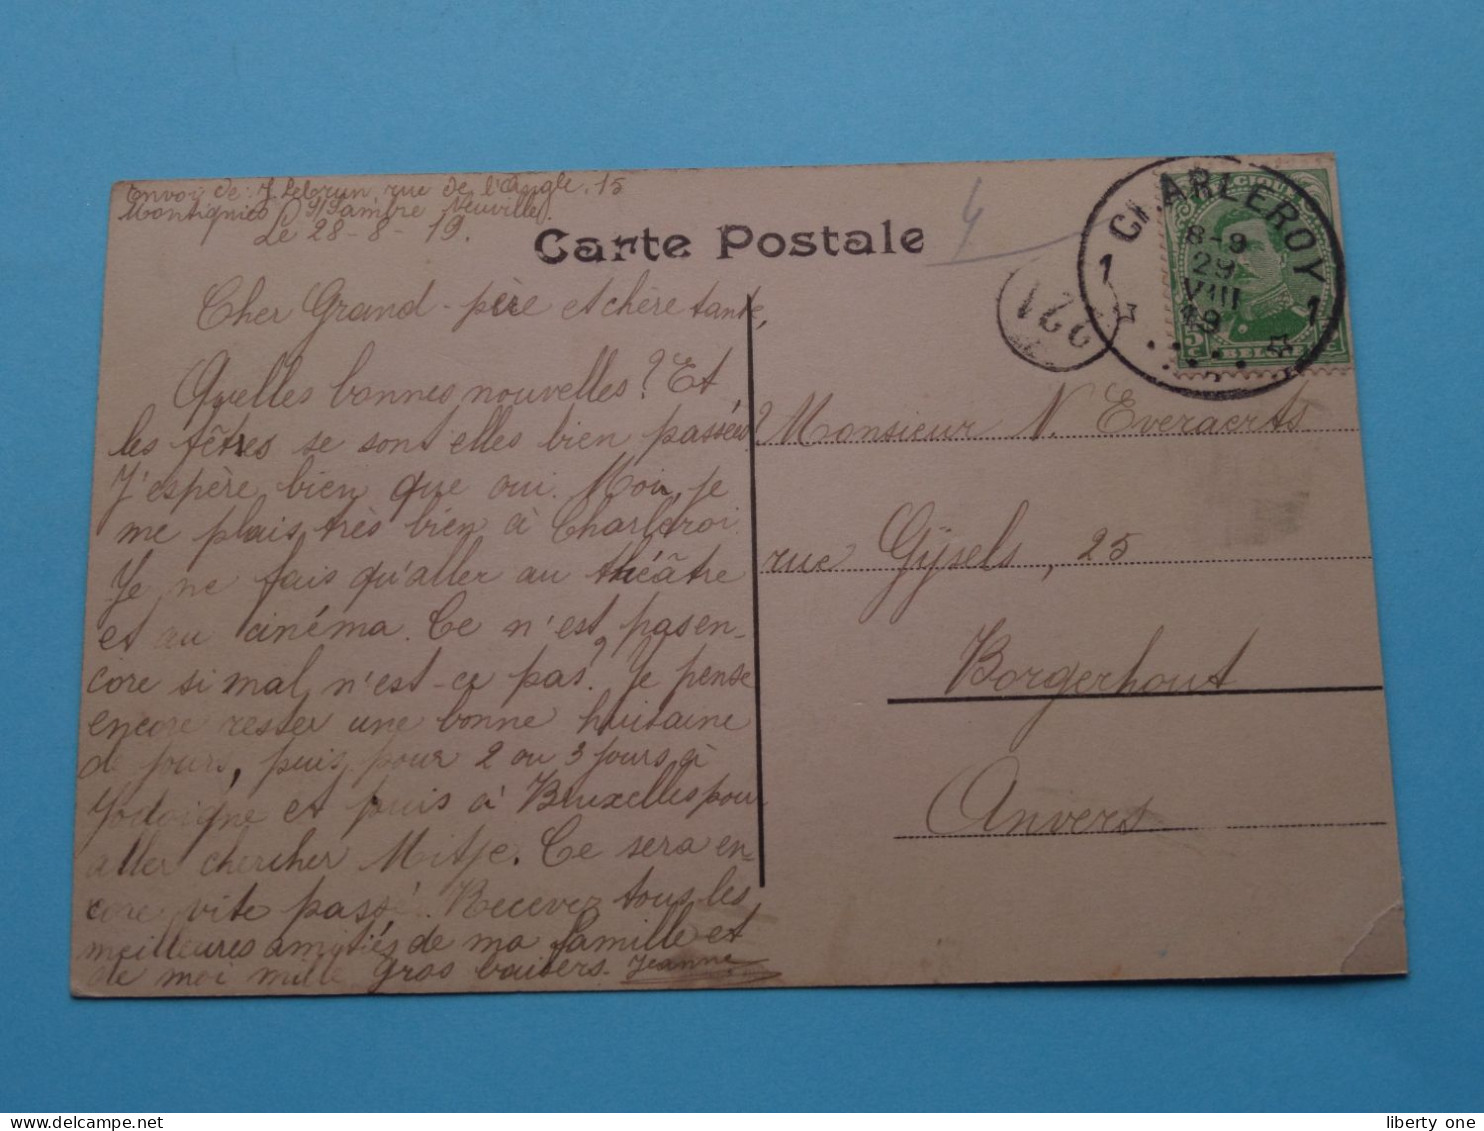 Envoi de: J. Lebrun, rue de l'Angle, 15
Montignies s/Sambre Neuville.
Le 28-8-19.
Carte Postale
4
CHARLEROY
1 1
8-9
29
VIII
19
221
BELGIQUE
5 c
BELGIE
Cher Grand-père et chère tante,
Quelles bonnes nouvelles? Et
les fêtes se sont elles bien passées?
J'espère bien que oui. Moi, je
me plais très bien à Charleroi.
Je ne fais qu'aller au théâtre
et au cinéma. Ce n'est pas en-
core si mal, n'est-ce pas? Je pense
encore rester une bonne huitaine
de jours, puis pour 2 ou 3 jours à
Jodoigne et puis à Bruxelles pour
aller chercher Mitje. Ce sera en-
core vite passé. Recevez tous les
meilleures amitiés de ma famille et
de moi mille gros baisers. Jeanne
Monsieur N. Everaerts
rue Gijsels, 25
Borgerhout
Anvers
liberty one